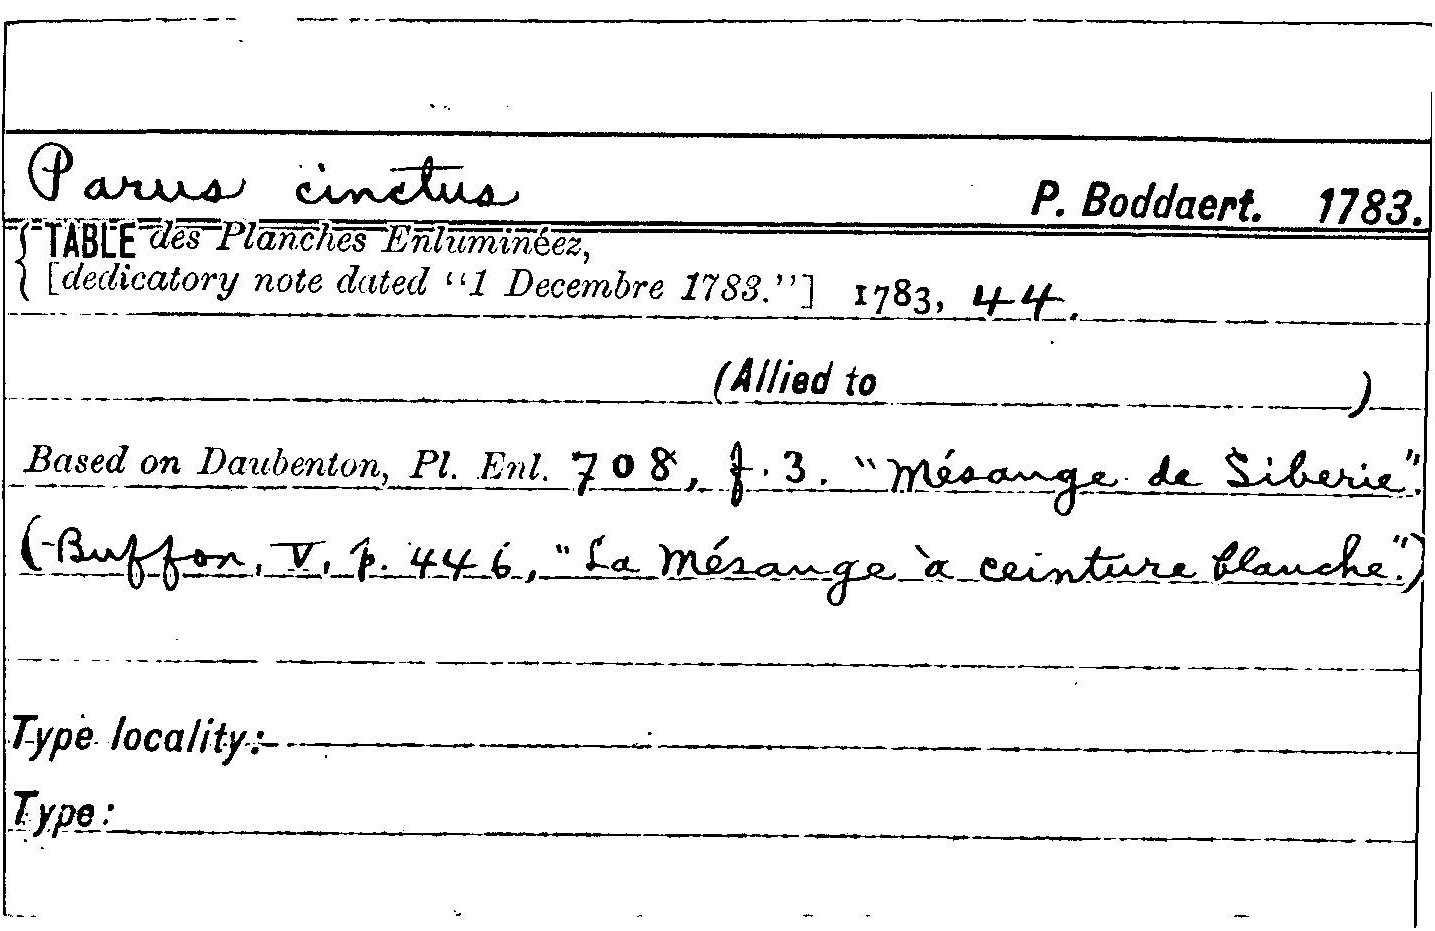 Parus cinctus P. Boddaert. 1783.
TABLE des Planches Enluminéez,
[dedicatory note dated "1 Decembre 1783."] 1783, 44.
(Allied to )
Based on Daubenton, Pl. Enl. 708, f. 3. "Mésange de Siberie".
(Buffon, V, p. 446, "La Mésange à ceinture blanche".)
Type locality:
Type: